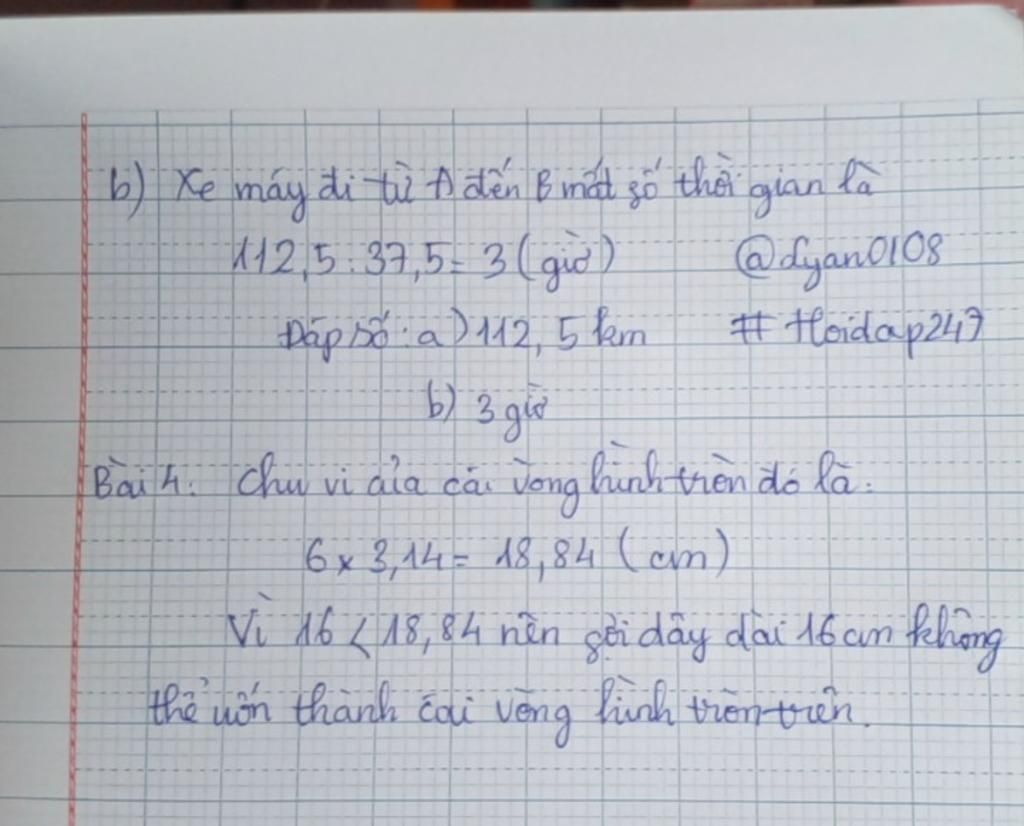 b) Xe máy đi từ A đến B mất số thời gian là
112,5 : 37,5 = 3 (giờ) @dyan0108
Đáp số : a) 112,5 km # Hoidap247
b) 3 giờ
Bài 4: Chu vi của cái vòng hình tròn đó là:
6 x 3,14 = 18,84 (cm)
Vì 16 < 18,84 nên sợi dây dài 16cm không
thể uốn thành cái vòng hình tròn trên.